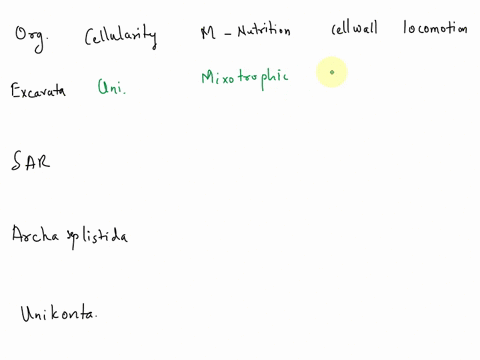 Org. Cellularity M - Nutrition cell wall locomotion
Excavata Uni. Mixotrophic
SAR
Archaeplistida
Unikonta.